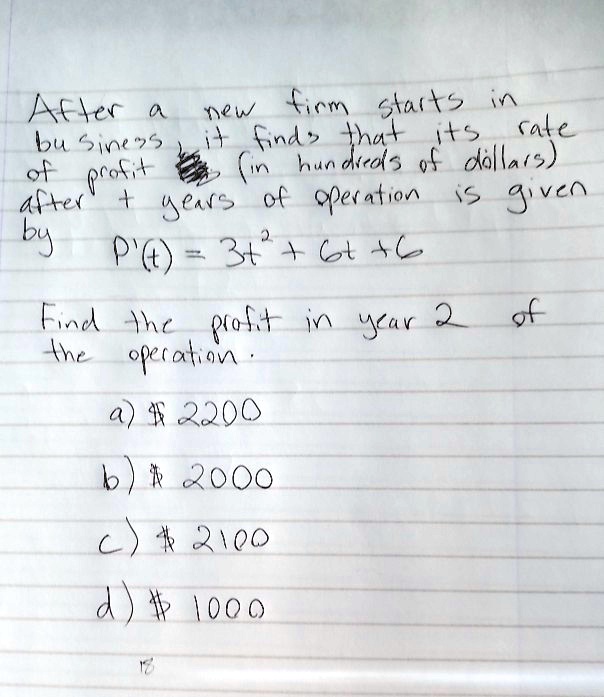 After a new firm starts in
business, it finds that its rate
of profit (in hundreds of dollars)
after t years of operation is given
by P'(t) = 3t² + 6t + 6
Find the profit in year 2 of
the operation.
a) $ 2200
b) $ 2000
c) $ 2100
d) $ 1000
18